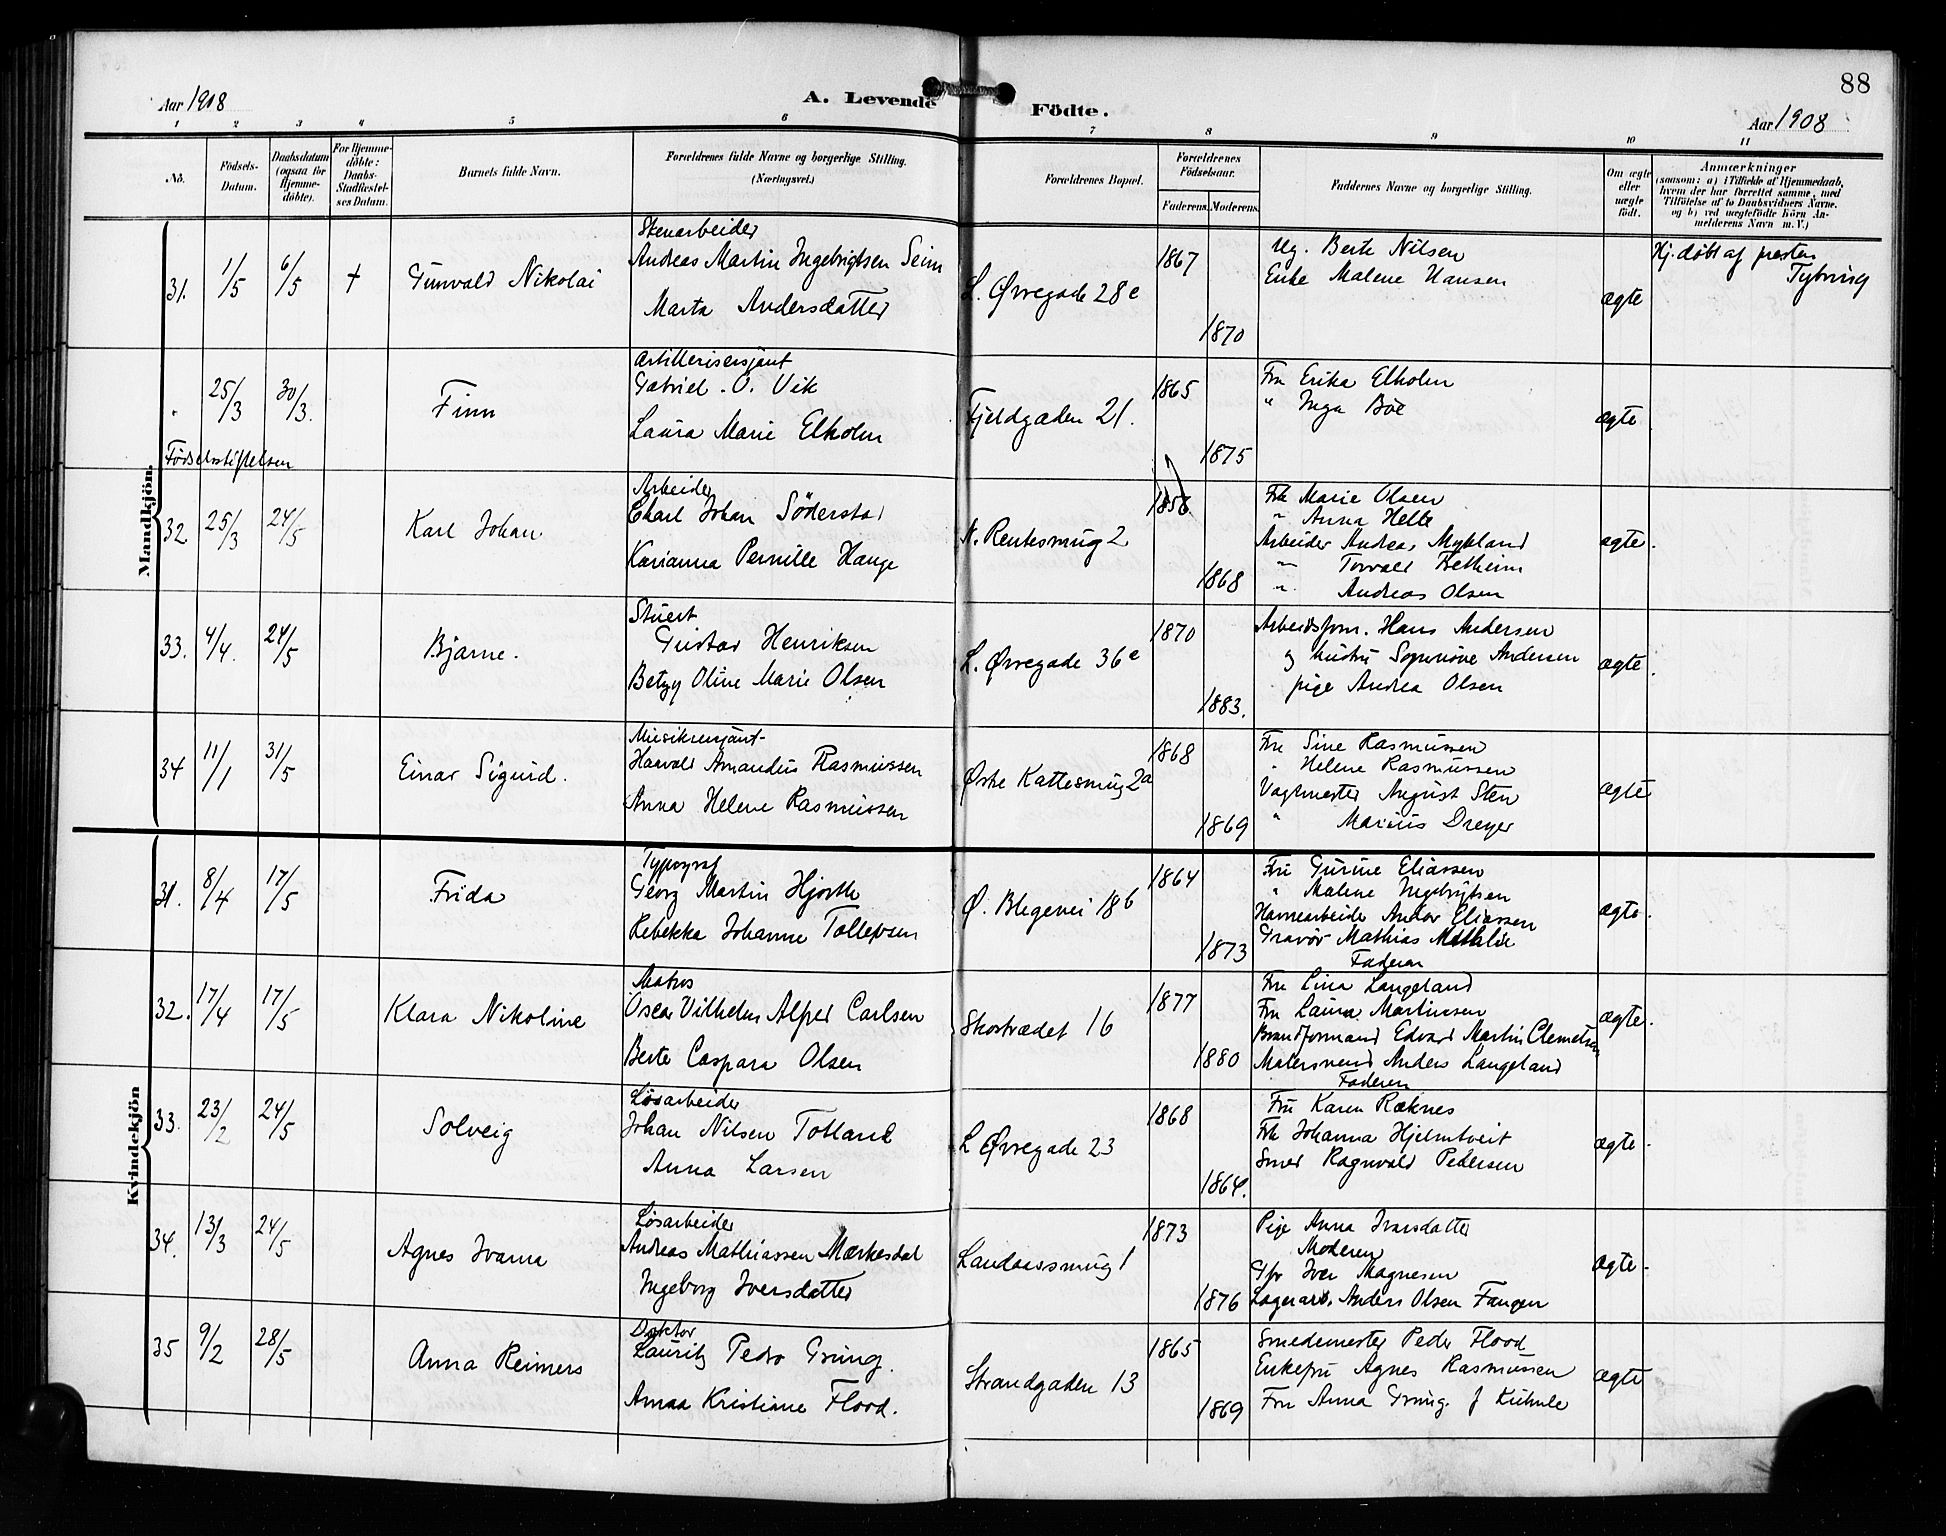 88
Aar 1908
A. Levende Födte.
Aar 1908
1 2 3 4 5 6 7 8 9 10 11
No.
Födsels-Datum.
Daabsdatum (ogsaa for Hjemme-döbte).
For Hjemme-döbte: Daabs-Stadfæstel-ses Datum.
Barnets fulde Navn.
Forældrenes fulde Navne og borgerlige Stilling. (Næringsvei.)
Forældrenes Bopæl.
Forældrenes Födselsaar.
Faderens. Moderens.
Faddernes Navne og borgerlige Stilling.
Om ægte eller uægte födt.
Anmærkninger
(saasom: a) i Tilfælde af Hjemmedaab, hvem der har forrettet samme, med Tilföielse af to Daabsvidners Navne. og b) ved uegtefödte Börn An-melderens Navn m. V.)
Mandkjön.
31. 1/5 6/5 + Gunvald Nikolai
Stenarbeider
Andreas Martin Ingebrigtsen Seim
Marta Andersdatter
L. Øvregade 28c
1867
1870
Ug. Berte Nilsen
Enke Malene Hansen
ægte
Hj. döbt af presten
Tybring
" 25/3 30/3. Finn
Födselsstiftelsen
Artillerisersjant
Gabriel. O. Vik
Laura Marie Elholm
Fjeldgaden 21.
1865
1875
Fru Erika Elholm
" Inga Böe
ægte
32 25/3 24/5 Karl Johan
Arbeider
Charl Johan Söderstad
Karianna Pernille Hauge
N. Rentesmug 2
1856
1868
Frk Marie Olsen
" Anna Helle
Arbeider Andreas Mykland
" Torvald Fretheim
" Andreas Olsen
ægte.
33. 4/4. 24/5 Bjarne.
Stuert
Gustav Henriksen
Betzy Oline Marie Olsen
L. Øvregade 36c
1870
1883.
Arbeidsform. Hans Andersen
og hustru Andersen
pige Andrea Olsen
ægte.
34 11/1 31/5 Einar Sigurd.
Musiksersjant
Haavald Amandus Rasmussen
Anna Helene Rasmussen
Østre Kattesmug 2a
1868
1869
Fru Sine Rasmussen
" Helene Rasmussen
Vagtmester August Sten
" Marius Dreyer
ægte
Kvindekjön
31. 8/4 17/5 Frida
Typograf
Georg Martin Hjorth
Rebekka Johanne Tollefsen
Ø. Blegevei 18b
1864
1873
Fru Gurine Eliassen
" Malene Ingebrigtsen
Havnearbeider Andor Eliassen
Gravör Mathias
Faderen
ægte.
32. 17/4 17/5 Klara Nikoline
Matros
Oscar Vilhelm Alfred Carlsen
Berte Caspara Olsen
Skostrædet 16
1877
1880
Fru Lina Langeland
Fru Laura Martinsen
Brandformand Edvard Martin Clemetsen
Malersvend Anders Langeland
Faderen
ægte.
33. 23/2 24/5 Solveig
Løsarbeider
Johan Nilsen Totland
Anna Larsen
L Øvregade 23
1868
1864.
Fru Karen Ræknes
Frk Johanna Hjelmtveit
Smed Ragnvald Pedersen
ægte.
34. 13/3 24/5 Agnes Ivarna
Løsarbeider
Andreas Mathiassen Mærkesdal
Ingeborg Iversdatter
Landaassmug 1
1873
1876
Pige Anna Ivarsdatter
Moderen
Gbr Iver Magnesen
Lagerarb. Anders Olsen Fangen
ægte.
35 9/2 28/5 Anna Reimers
Doktor
Lauritz Pedro Grung.
Anna Kristiane Flood.
Strandgaden 13
1865
1869
Smedemester Peder Flood
Enkefru Agnes Rasmussen
Fru Anna Grung. f Kuhnle
ægte